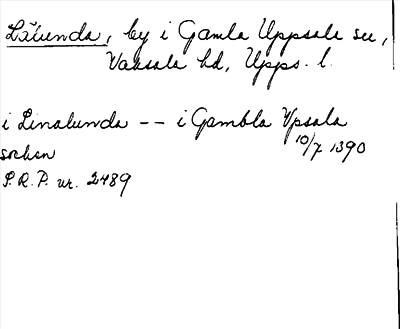 Läiunda, by i Gamla Uppsala sn,
Vaksala hd, Upps. l.
i Linalunda -- i Gambla Vpsala
10/7 1390
soken
S.R.P. nr. 2489